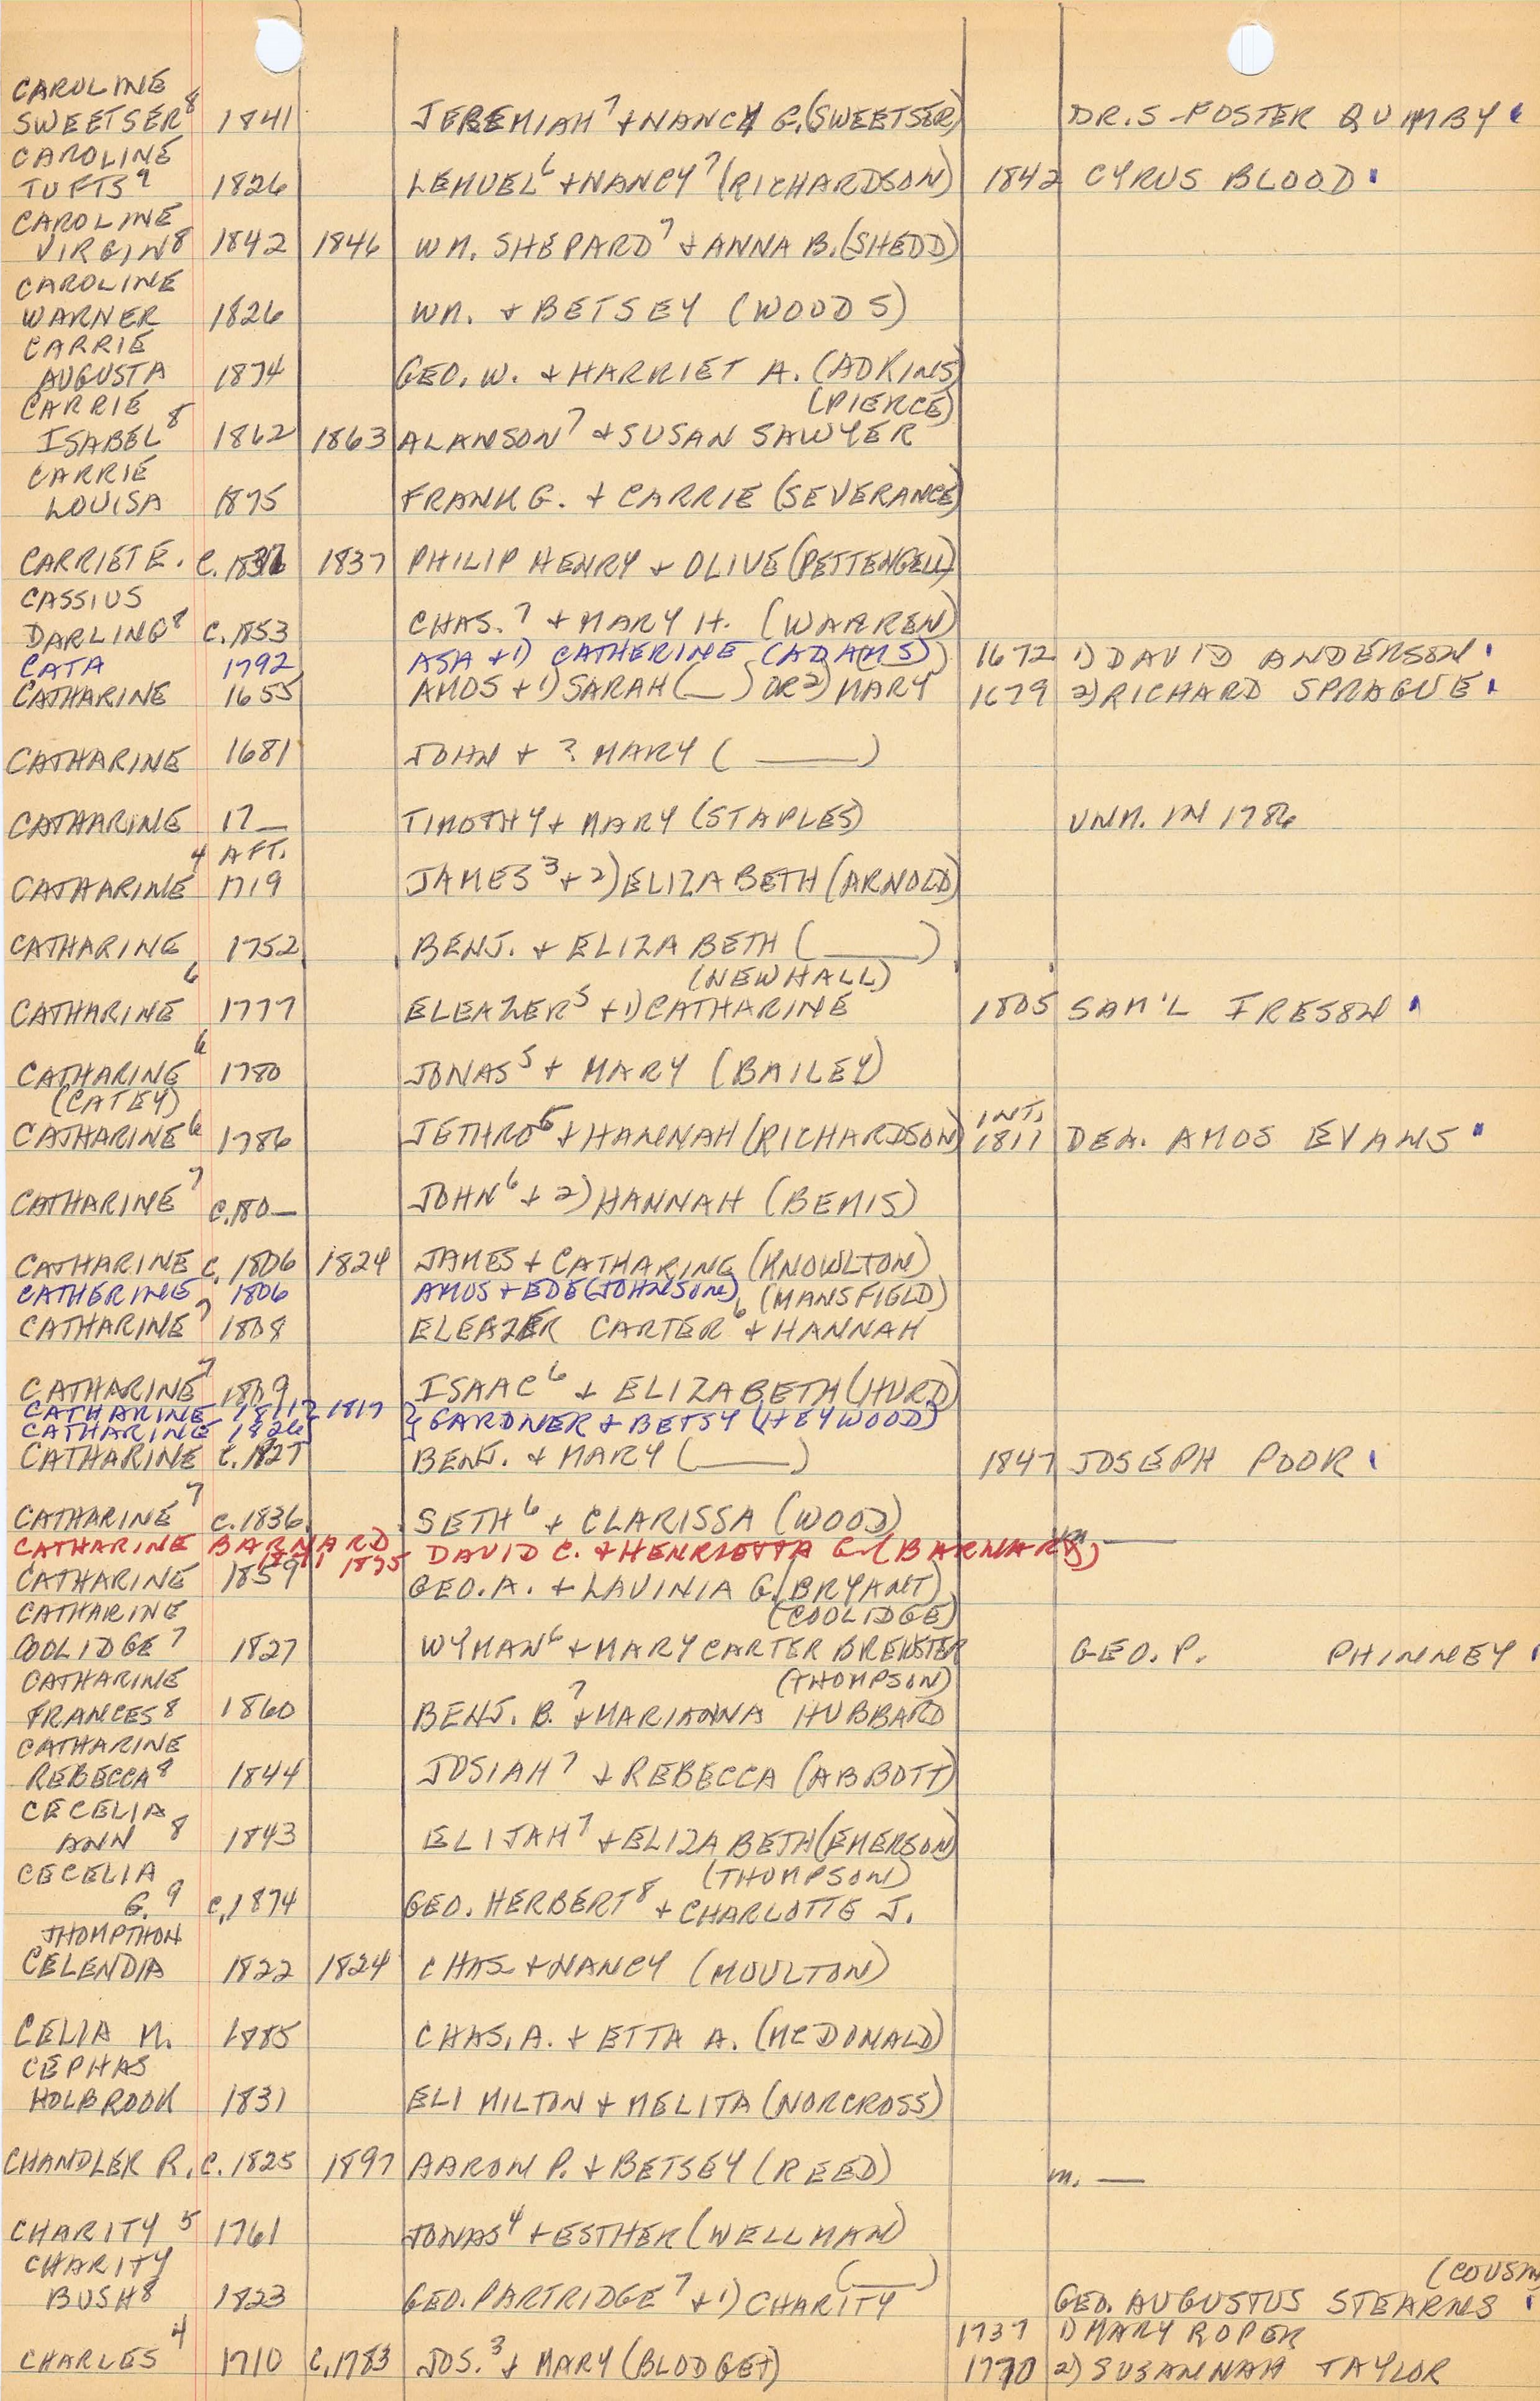 CAROLINE
SWEETSER⁸ 1841 JEREMIAH⁷ + NANCY G. (SWEETSER) DR. S. FOSTER QUIMBY
CAROLINE
TUFTS⁹ 1826 LEMUEL⁶ + NANCY⁷ (RICHARDSON) 1842 CYRUS BLOOD
CAROLINE
VIRGIN⁸ 1842 1846 WM. SHEPARD⁷ + ANNA B. (SHEDD)
CAROLINE
WARNER 1826 WM. + BETSEY (WOODS)
CARRIE
AUGUSTA 1874 GEO. W. + HARRIET A. (ADKINS)
CARRIE (PIERCE)
ISABEL⁸ 1862 1863 ALANSON⁷ + SUSAN SAWYER
CARRIE
LOUISA 1875 FRANK G. + CARRIE (SEVERANCE)
CARRIE E. C. 1837 PHILIP HENRY + OLIVE (PETTENGELL)
CASSIUS
DARLING⁸ C. 1853 CHAS.⁷ + MARY H. (WARREN)
CATA 1792 ASA + 1) CATHERINE (ADAMS) 1672 1) DAVID ANDERSON
CATHARINE 1655 AMOS + 1) SARAH (__) OR 2) MARY (__) 1679 2) RICHARD SPRAGUE
CATHARINE 1681 JOHN + ? MARY ( ____ )
CATHARINE 17__ TIMOTHY + MARY (STAPLES) UNM. IN 1786
AFT.
CATHARINE⁴ 1719 JAMES³ + 2) ELIZABETH (ARNOLD)
CATHARINE 1752 BENJ. + ELIZABETH ( ____ )
(NEWHALL)
CATHARINE⁶ 1777 ELEAZER⁵ + 1) CATHARINE 1805 SAM'L IRESON
CATHARINE⁶ 1780 JONAS⁵ + MARY (BAILEY)
(CATEY) INT.
CATHARINE⁶ 1786 JETHRO⁵ + HANNAH (RICHARDSON) 1811 DEA. AMOS EVANS
CATHARINE⁷ C. 180_ JOHN⁶ + 2) HANNAH (BEMIS)
CATHARINE C. 1806 1824 JAMES + CATHARINE (KNOWLTON)
CATHERINE 1806 AMOS + EDE (JOHNSON) (MANSFIELD)
CATHARINE⁷ 1808 ELEAZER CARTER⁶ + HANNAH
CATHARINE⁷ 1809 ISAAC⁶ + ELIZABETH (HURD)
CATHARINE 1817 } GARDNER + BETSY (HEYWOOD)
CATHARINE 1826
CATHARINE C. 1827 BENJ. + MARY ( ____ ) 1847 JOSEPH POOR
CATHARINE⁷ C. 1836 SETH⁶ + CLARISSA (WOOD) m. ____
CATHARINE BARNARD 1895 DAVID C. + HENRIETTA C. (BARNARD)
CATHARINE 1859 GEO. A. + LAVINIA G. (BRYANT)
CATHARINE (COOLIDGE)
COOLIDGE⁷ 1827 WYMAN⁶ + MARY CARTER BREWSTER GEO. P. PHINNEY
CATHARINE (THOMPSON)
FRANCES⁸ 1860 BENJ. B.⁷ + MARIANNA HUBBARD
CATHARINE
REBECCA⁸ 1844 JOSIAH⁷ + REBECCA (ABBOTT)
CECELIA
ANN⁸ 1843 ELIJAH⁷ + ELIZABETH (EMERSON)
CECELIA (THOMPSON)
G.⁹ C. 1874 GEO. HERBERT⁸ + CHARLOTTE J.
THOMPTHON
CELENDIA 1822 1824 CHAS + NANCY (MOULTON)
CELIA M. 1885 CHAS. A. + ETTA A. (MCDONALD)
CEPHAS
HOLBROOK 1831 ELI MILTON + MELITA (NORCROSS)
CHANDLER R. C. 1825 1897 AARON P. + BETSEY (REED) m. __
CHARITY⁵ 1761 JONAS⁴ + ESTHER (WELLMAN)
CHARITY (___) (COUSIN
BUSH⁸ 1823 GEO. PARTRIDGE⁷ + 1) CHARITY GEO. AUGUSTUS STEARNS
1737 1) MARY ROPER
CHARLES⁴ 1710 C. 1783 JOS.³ + MARY (BLODGET) 1770 2) SUSANNAH TAYLOR